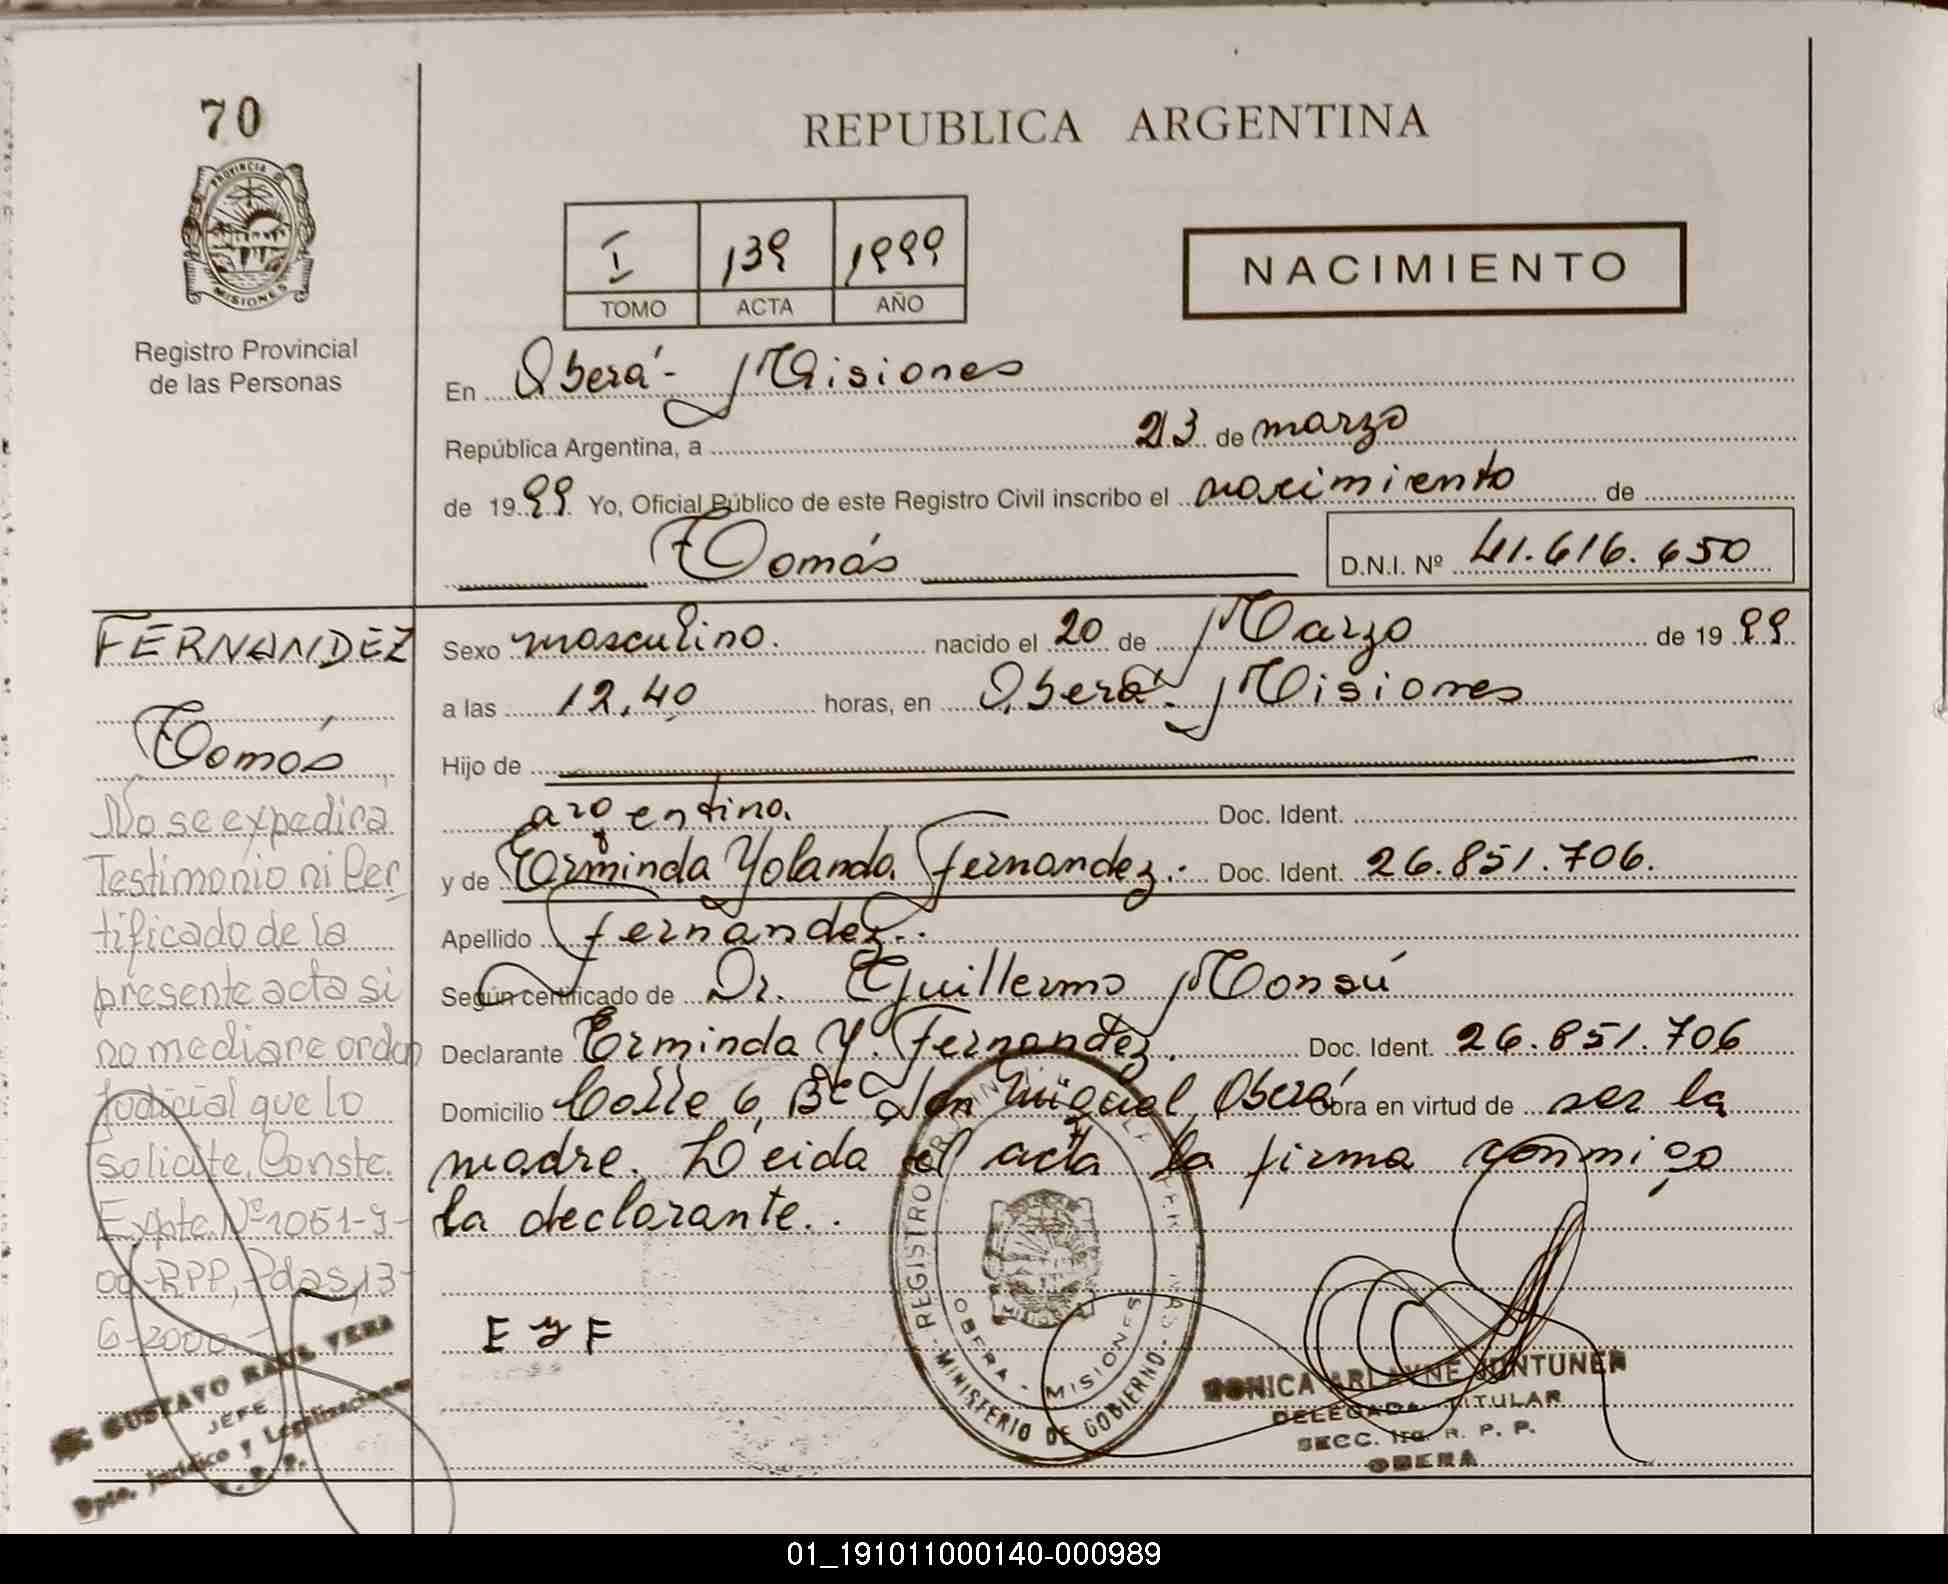 70
REPUBLICA ARGENTINA
PROVINCIA D
MISIONES
Registro Provincial
de las Personas
I 139 1999
TOMO ACTA AÑO
NACIMIENTO
En Oberá - Misiones
República Argentina, a 23 de marzo
de 1999 Yo, Oficial Público de este Registro Civil inscribo el nacimiento de
Tomás D.N.I. Nº 41.616.650
FERNANDEZ
Tomás
No se expedira
Testimonio ni Cer
tificado de la
presente acta si
no mediare orden
Judicial que lo
solicite. Conste.
Expte. Nº 1061-9-
RPP, Pdas, 13-
6-2000-
GUSTAVO RAUL VERA
JEFE
Dpto. Jurídico y Legalizaciones
R. P. P.
Sexo masculino. nacido el 20 de Marzo de 1999
a las 12,40 horas, en Oberá - Misiones
Hijo de
argentina. Doc. Ident.
y de Erminda Yolanda Fernandez.- Doc. Ident. 26.851.706.
Apellido Fernández..
Según certificado de Dr. Guillermo Monsú
Declarante Erminda Y. Fernandez. Doc. Ident. 26.851.706
Domicilio Calle 6, Bº San Miguel, Oberá Obra en virtud de ser la
madre. Leida el acta la firma conmigo
la declarante..
E y F
REGISTRO
OBERA - MISIONES
MINISTERIO DE GOBIERNO
MONICA ARLAYNE JONTUNEN
DELEGADA TITULAR
SECC. 1ra. R. P. P.
OBERA
01_191011000140-000989